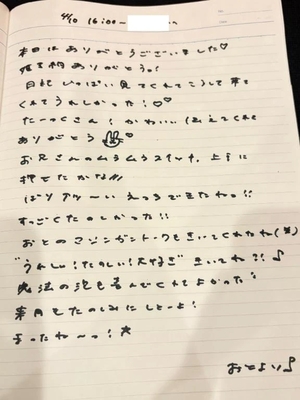 4/10 16:00〜
本日はありがとうございました♡
ありがとうっ!
日記いっぱい見てくれてこうして来て
くれてうれしかった!♡♡
たーっくさん!かわいい伝えてくれて
ありがとう
お兄さんのムラムラスイッチ、上手に
押せたかな///
ばりアツ〜いえっちできたねっ!!
すっごくたのしかった!!
おとのマシンガントークもきいてくれたね(笑)
"うれしい!たのしい!大好き" きいてね?!♪
魔法の泡も喜んでくれてよかった
来月もたのしみにしとーよ!
まったね〜っ!☆
おとより♪